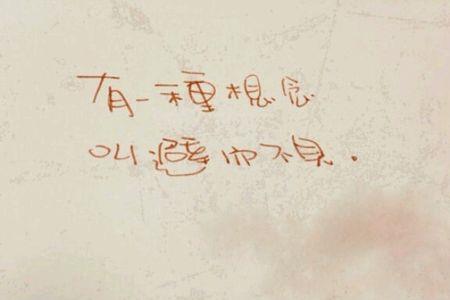 有一種想念
叫避而不見.